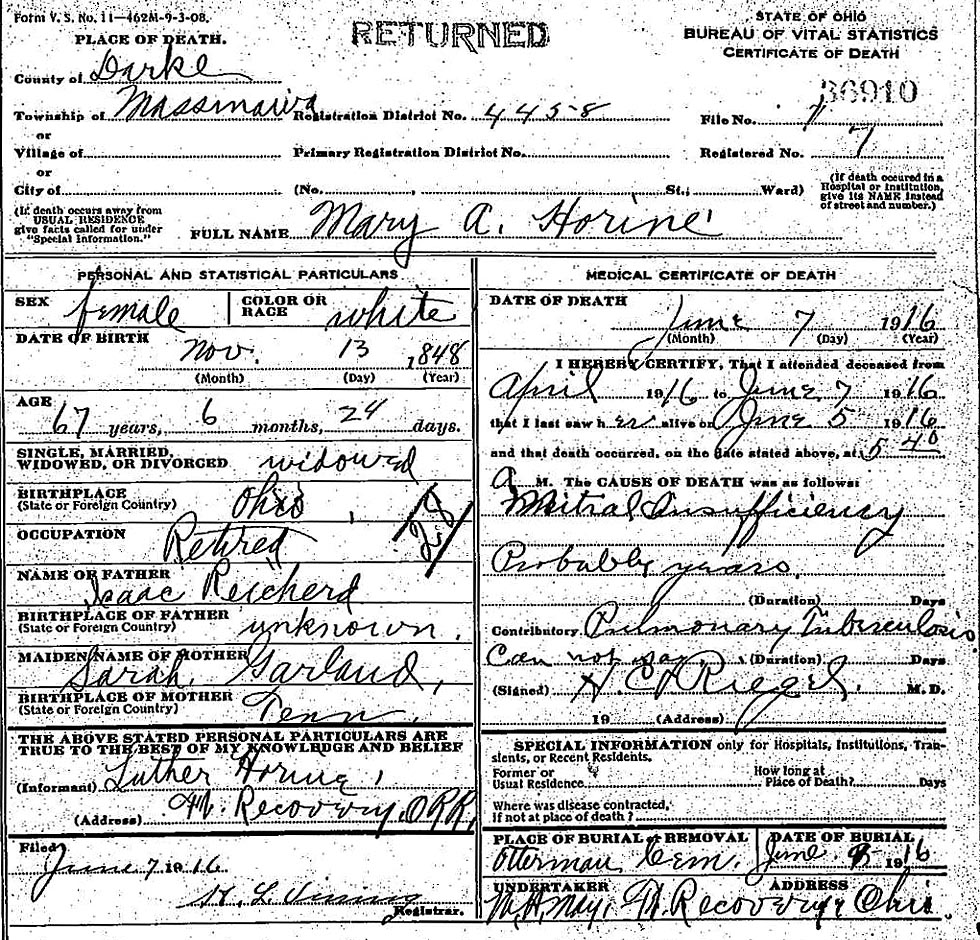 Form V. S. No. 11—462M-9-3-08.
RETURNED
STATE OF OHIO
BUREAU OF VITAL STATISTICS
CERTIFICATE OF DEATH
PLACE OF DEATH.
County of Darke
36910
Township of Massinawa Registration District No. 4458 File No.
or
Village of Primary Registration District No. Registered No. 7
or
City of (No. , St.; Ward)
(If death occured in a Hospital or Institution, give its NAME instead of street and number.)
(If death occurs away from USUAL RESIDENCE give facts called for under "Special Information.")
FULL NAME Mary A. Horine
PERSONAL AND STATISTICAL PARTICULARS
SEX female COLOR OR RACE white
DATE OF BIRTH Nov. 13 1848
(Month) (Day) (Year)
AGE
67 years, 6 months, 24 days.
SINGLE, MARRIED, WIDOWED, OR DIVORCED widowed
BIRTHPLACE
(State or Foreign Country) Ohio
OCCUPATION Retired
28
NAME OF FATHER
Isaac Reicherd
BIRTHPLACE OF FATHER
(State or Foreign Country) unknown.
MAIDEN NAME OF MOTHER
Sarah Garland,
BIRTHPLACE OF MOTHER
(State or Foreign Country) Tenn.
THE ABOVE STATED PERSONAL PARTICULARS ARE
TRUE TO THE BEST OF MY KNOWLEDGE AND BELIEF
(Informant) Luther Horine,
(Address) Ft. Recovery, O RR,
Filed
June 7 1916
H. L. Vining
Registrar.
MEDICAL CERTIFICATE OF DEATH
DATE OF DEATH
June 7 1916
(Month) (Day) (Year)
I HEREBY CERTIFY, That I attended deceased from
April 1916 to June 7 1916
that I last saw her alive on June 5 1916
and that death occurred, on the date stated above, at 5 40
A M. The CAUSE OF DEATH was as follows:
Mitral Insufficiency
Probably years,
(Duration) Days
Contributory Pulmonary Tuberculosis
Can not say (Duration) Days
(Signed) H. C. Riegel, M. D.
19 (Address)
SPECIAL INFORMATION only for Hospitals, Institutions, Transients, or Recent Residents.
Former or Usual Residence How long at Place of Death? Days
Where was disease contracted,
If not at place of death?
PLACE OF BURIAL or REMOVAL DATE OF BURIAL
Otterman Cem. June 1916
UNDERTAKER ADDRESS
May, Ft. Recovery, Ohio